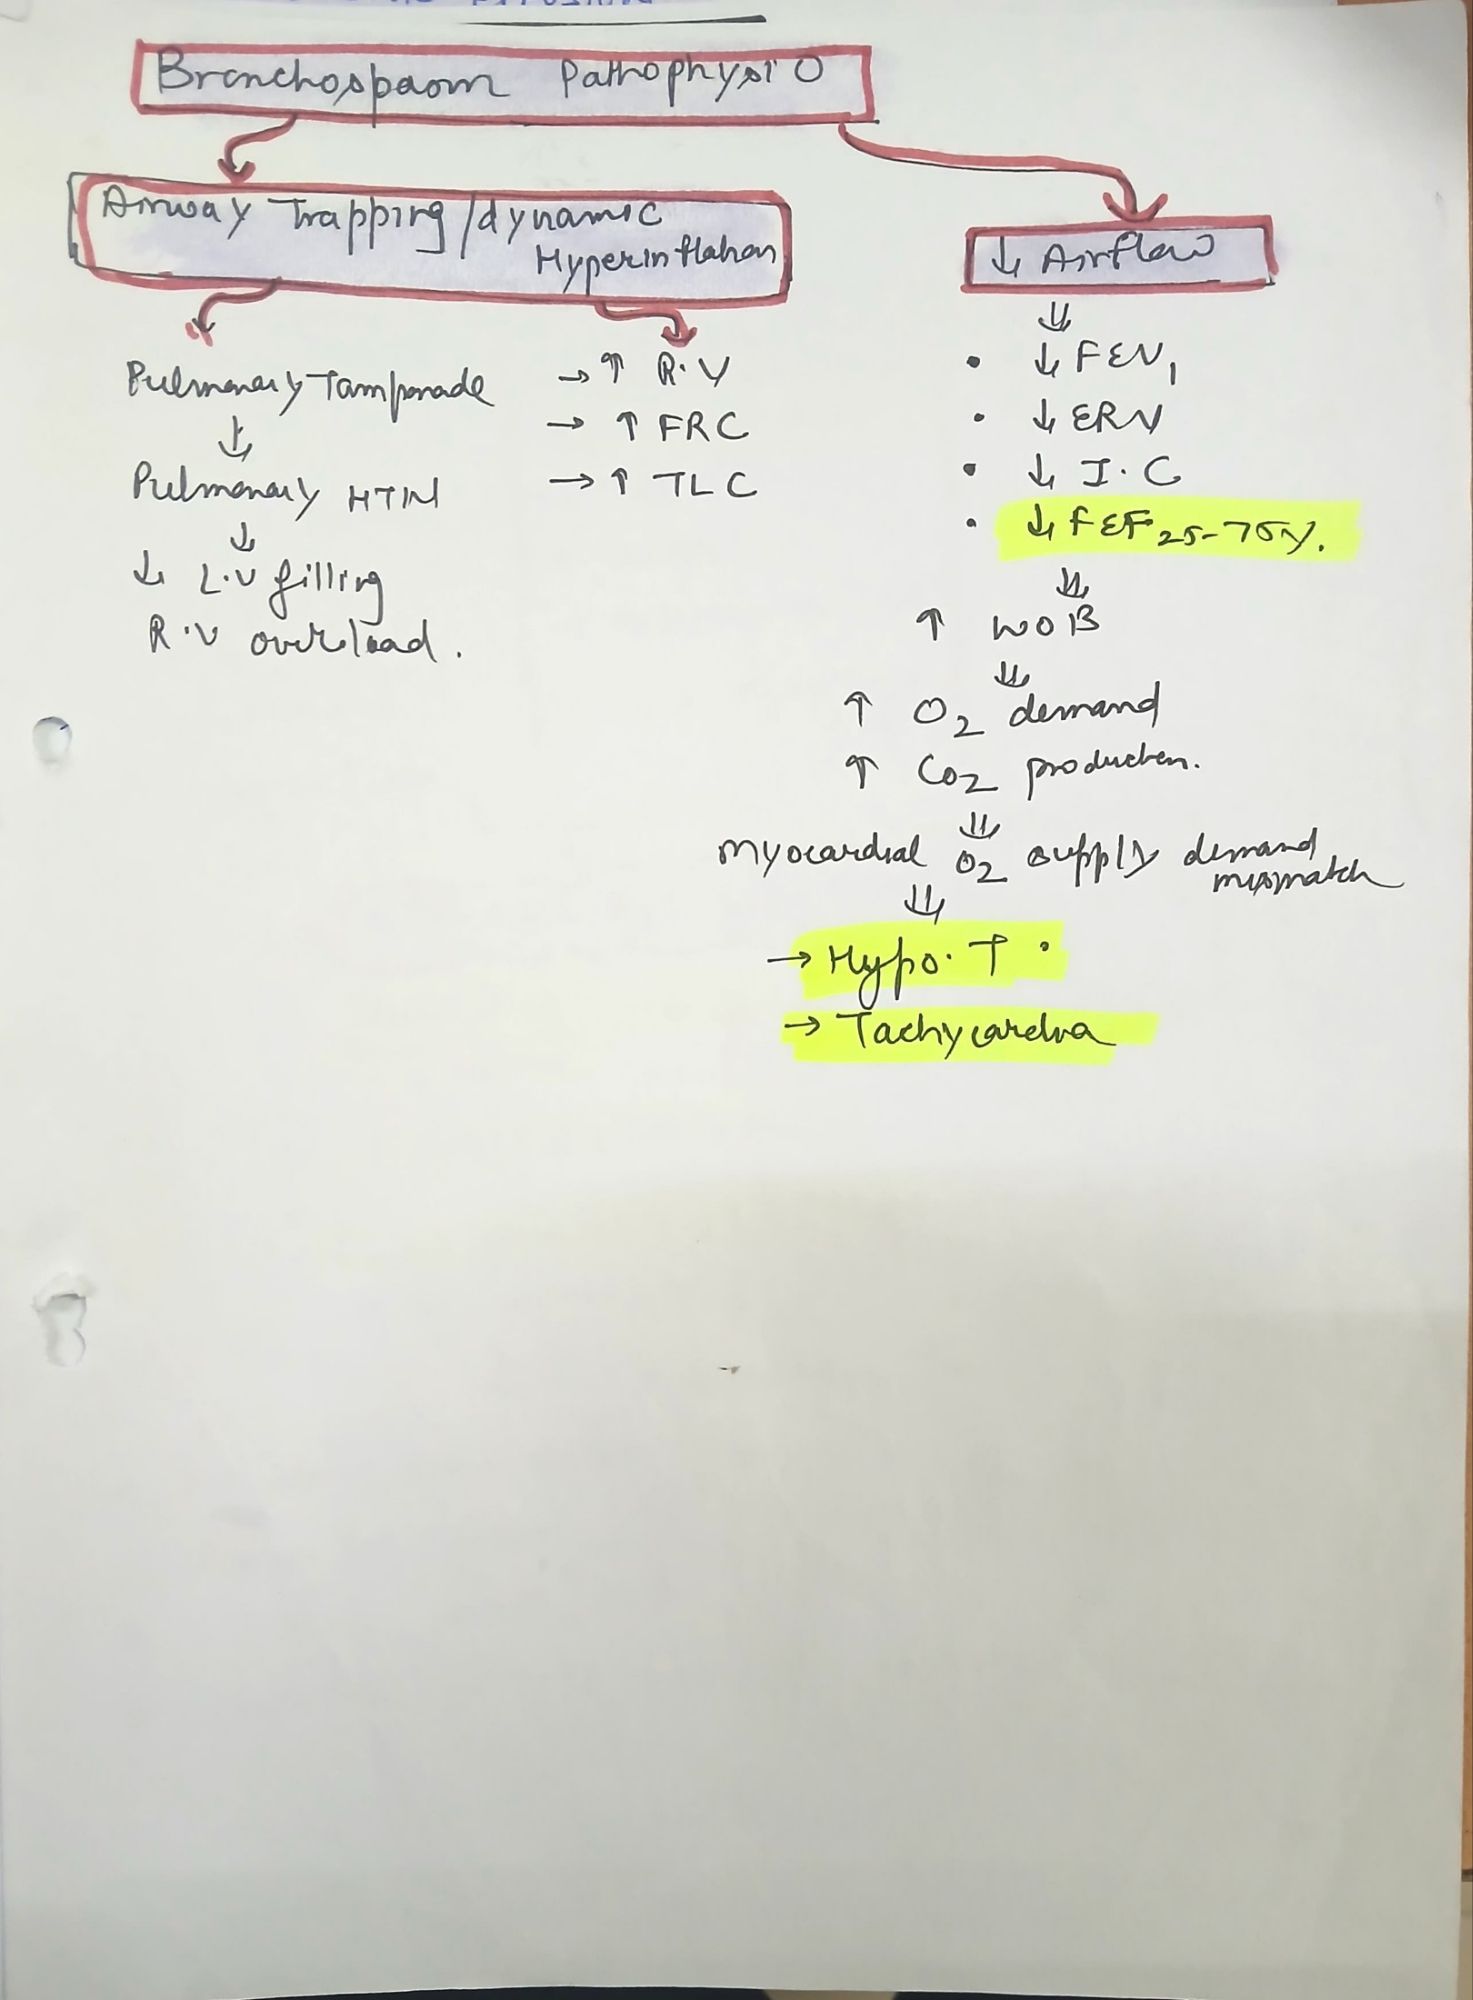 Bronchospasm Pathophysio
Airway Trapping/dynamic
Hyperinflation
↓ Airflow
Pulmonary Tamponade
↓
Pulmonary HTN
↓
↓ L.V filling
R.V overload.
→ ↑ R.V
→ ↑ FRC
→ ↑ TLC
⇓
• ↓ FEV1
• ↓ ERV
• ↓ I.C
• ↓ FEF 25-75%.
⇓
↑ WOB
⇓
↑ O2 demand
↑ CO2 production.
⇓
myocardial O2 supply demand
mismatch
⇓
→ Hypo.T
→ Tachycardia